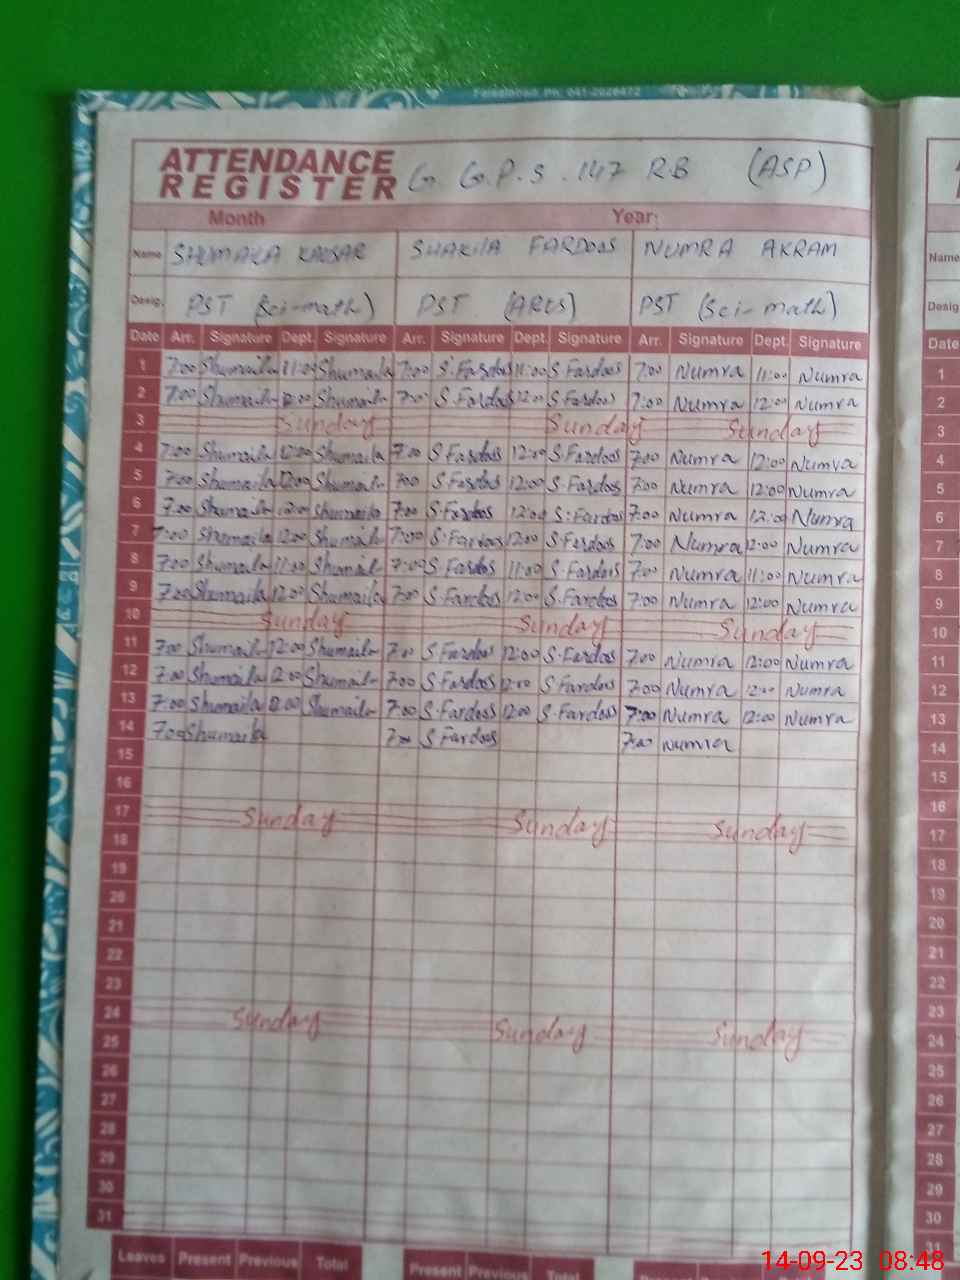 Faisalabad. Ph: 041-2626472
ATTENDANCE
REGISTER G. G.P.S. 147 RB (ASP)
Month Year:
Name SHUMAILA KAUSAR SHAKILA FARDOOS NUMRA AKRAM
Desig. PST (Sci-math) PST (ARTS) PST (Sci-math)
Date Arr. Signature Dept. Signature Arr. Signature Dept. Signature Arr. Signature Dept. Signature
1 7:00 Shumaila 11:00 Shumaila 7:00 S.Fardoos 11:00 S.Fardoos 7:00 Numra 11:00 Numra
2 7:00 Shumaila 12:00 Shumaila 7:00 S.Fardoos 12:00 S.Fardoos 7:00 Numra 12:00 Numra
3 Sunday Sunday Sunday
4 7:00 Shumaila 12:00 Shumaila 7:00 S.Fardoos 12:00 S.Fardoos 7:00 Numra 12:00 Numra
5 7:00 Shumaila 12:00 Shumaila 7:00 S.Fardoos 12:00 S.Fardoos 7:00 Numra 12:00 Numra
6 7:00 Shumaila 12:00 Shumaila 7:00 S.Fardoos 12:00 S.Fardoos 7:00 Numra 12:00 Numra
7 7:00 Shumaila 12:00 Shumaila 7:00 S.Fardoos 12:00 S.Fardoos 7:00 Numra 12:00 Numra
8 7:00 Shumaila 11:00 Shumaila 7:00 S.Fardoos 11:00 S.Fardoos 7:00 Numra 11:00 Numra
9 7:00 Shumaila 12:00 Shumaila 7:00 S.Fardoos 12:00 S.Fardoos 7:00 Numra 12:00 Numra
10 Sunday Sunday Sunday
11 7:00 Shumaila 12:00 Shumaila 7:00 S.Fardoos 12:00 S.Fardoos 7:00 Numra 12:00 Numra
12 7:00 Shumaila 12:00 Shumaila 7:00 S.Fardoos 12:00 S.Fardoos 7:00 Numra 12:00 Numra
13 7:00 Shumaila 12:00 Shumaila 7:00 S.Fardoos 12:00 S.Fardoos 7:00 Numra 12:00 Numra
14 7:00 Shumaila 7:00 S.Fardoos 7:00 Numra
15
16
17 Sunday Sunday Sunday
18
19
20
21
22
23
24 Sunday Sunday Sunday
25
26
27
28
29
30
31
Leaves Present Previous Total Present Previous Total
Name
Desig
Date
1
2
3
4
5
6
7
8
9
10
11
12
13
14
15
16
17
18
19
20
21
22
23
24
25
26
27
28
29
30
31
14-09-23 08:48